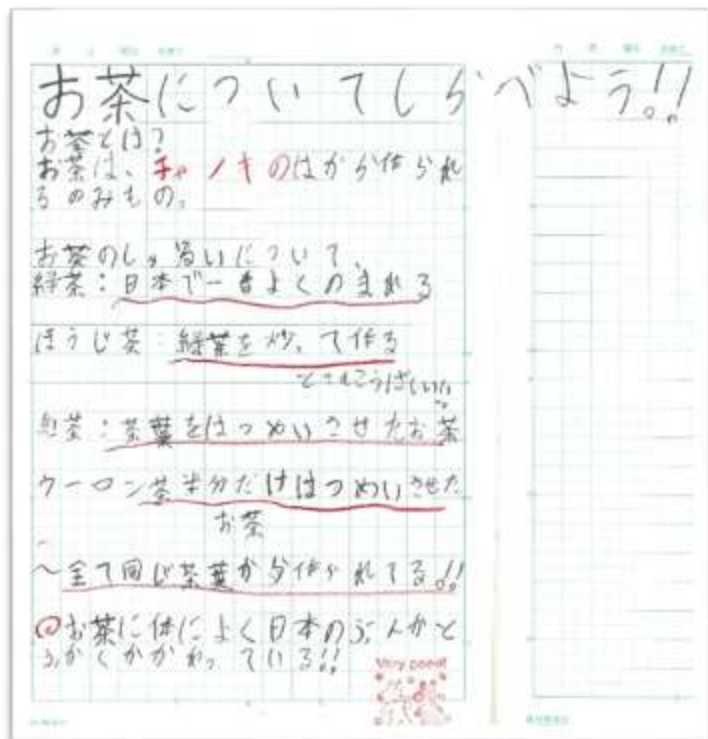 お茶についてしらべよう!!
お茶とは?
お茶は、チャノキのはから作られ
るのみもの。
お茶のしゅるいについて、
緑茶:日本で一番よくのまれる
ほうじ茶:緑茶を炒って作る
紅茶:茶葉をはつめいさせたお茶
ウーロン茶半分だけはつめいさせた
お茶
〜全て同じ茶葉から作られてる!!
お茶に体によく日本のぶんかと
ふかくかかわっている!!
Very good!